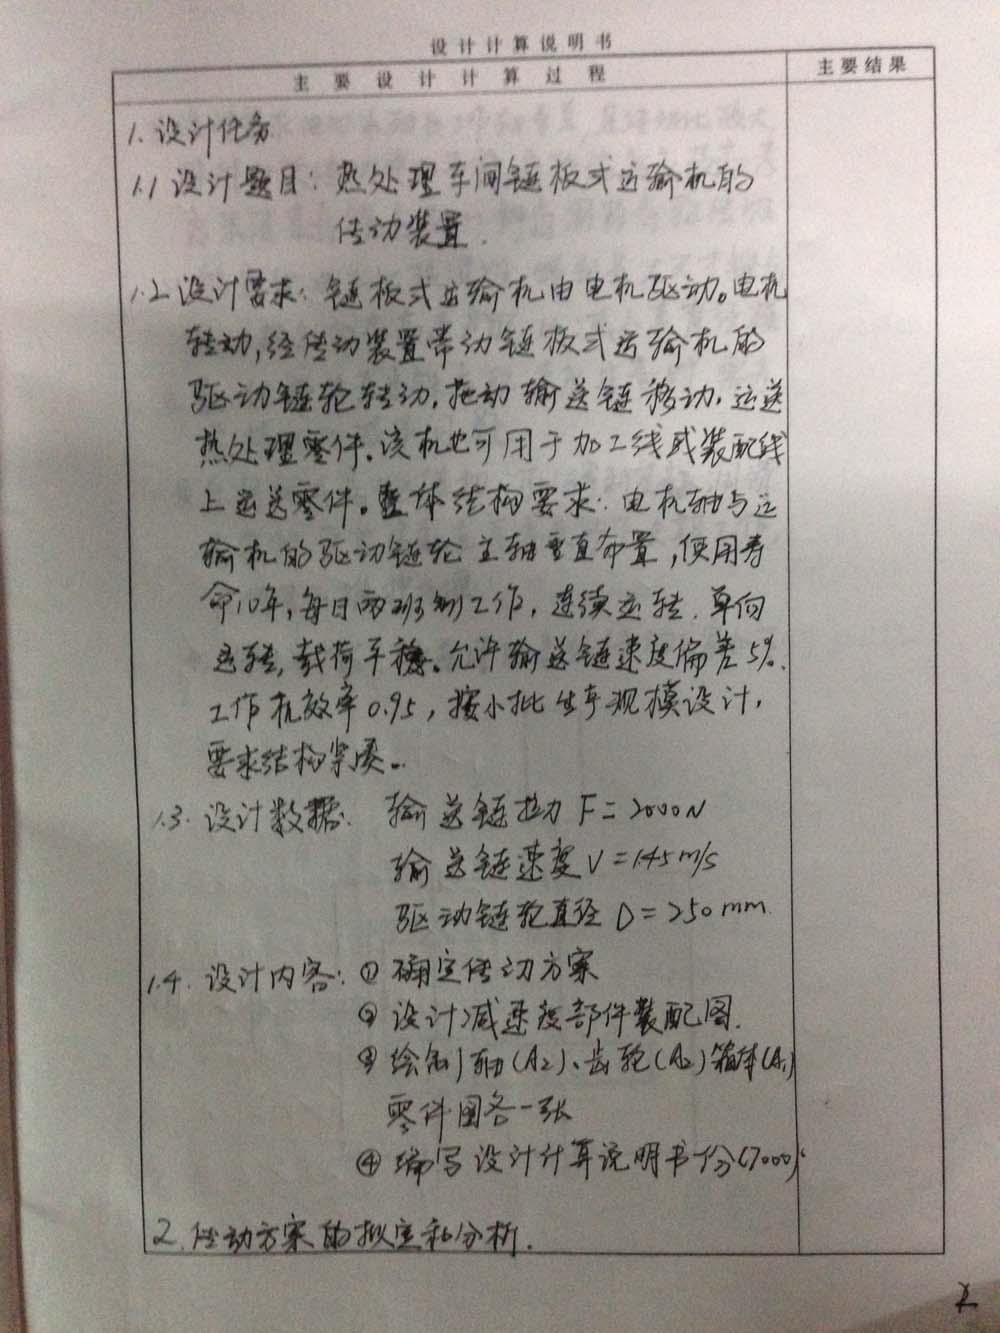 设计计算说明书
主要设计计算过程
主要结果
1.设计任务
1.1 设计题目：热处理车间链板式运输机的
传动装置.
1.2 设计要求：链板式运输机由电机驱动。电机
转动,经传动装置带动链板式运输机的
驱动链轮转动,拖动输送链移动,运送
热处理零件。该机也可用于加工线或装配线
上运送零件。整体结构要求：电机轴与运
输机的驱动链轮主轴垂直布置,使用寿
命10年,每日两班制工作,连续运转.单向
运转,载荷平稳。允许输送链速度偏差5%.
工作机效率0.95,按小批生产规模设计,
要求结构紧凑。
1.3.设计数据. 输送链拉力 F=2000N
输送链速度 V=1.45m/s
驱动链轮直径 D=250mm.
1.4.设计内容：① 确定传动方案
② 设计减速度部件装配图.
③ 绘制轴(A2)、齿轮(A2)箱体(A1)
零件图各一张
④ 编写设计计算说明书一份(7000)
2.传动方案的拟定和分析.
2